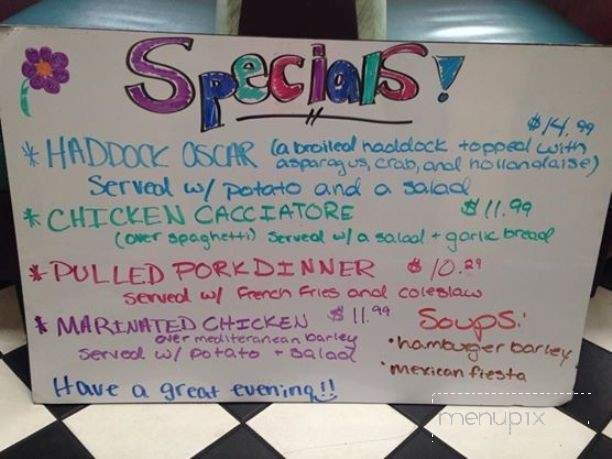 Specials!
$14.99
* HADDOCK OSCAR (a broiled haddock topped with
asparagus, crab, and hollandaise)
Served w/ potato and a salad
* CHICKEN CACCIATORE $11.99
(over spaghetti) served w/ a salad + garlic bread
* PULLED PORK DINNER $10.29
served w/ French fries and coleslaw
* MARINATED CHICKEN $11.99
over mediteranean barley
served w/ potato + salad
Soups:
• hamburger barley
• mexican fiesta
Have a great evening!!
menupix